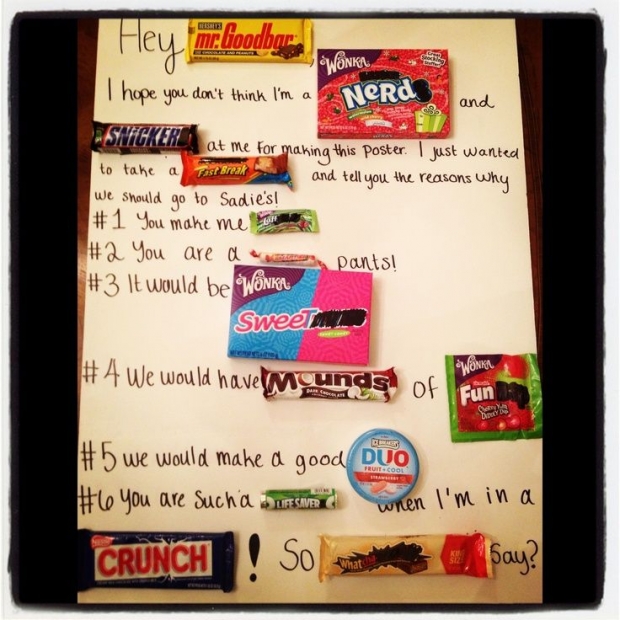 Hey HERSHEY'S mr.Goodbar
I hope you don't think I'm a WONKA NeRd and
SNICKER at me for making this poster. I just wanted
to take a Fast Break and tell you the reasons why
we should go to Sadie's!
#1 You make me
#2 You are a pants!
#3 It would be WONKA SweeT
#4 We would have Mounds DARK CHOCOLATE of WONKA Fun
#5 we would make a good ICE BREAKERS DUO FRUIT + COOL STRAWBERRY
#6 You are such a LIFE SAVER when I'm in a
CRUNCH! So What KING SIZE say?